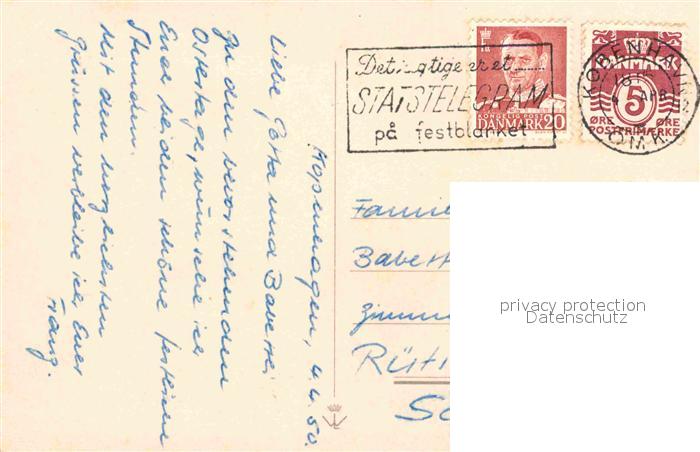 Kopenhagen, 4.4.50.
Liebe Götte und Babette,
Zu den bevorstehenden
Ostertage, wünsche ich
Euch beiden schöne festliche
Stunden.
Mit den herzlichsten
Grüssen verbleibe ich Euer
Det rigtige er et
STATSTELEGRAM
på festblanket
KONGELIG POST
DANMARK 20
DANMARK
5
ØRE ØRE
POSTFRIMÆRKE
KØBENHAVN
OMK.
Famili
Babett
Zimm
Rüti
Sc
privacy protection
Datenschutz